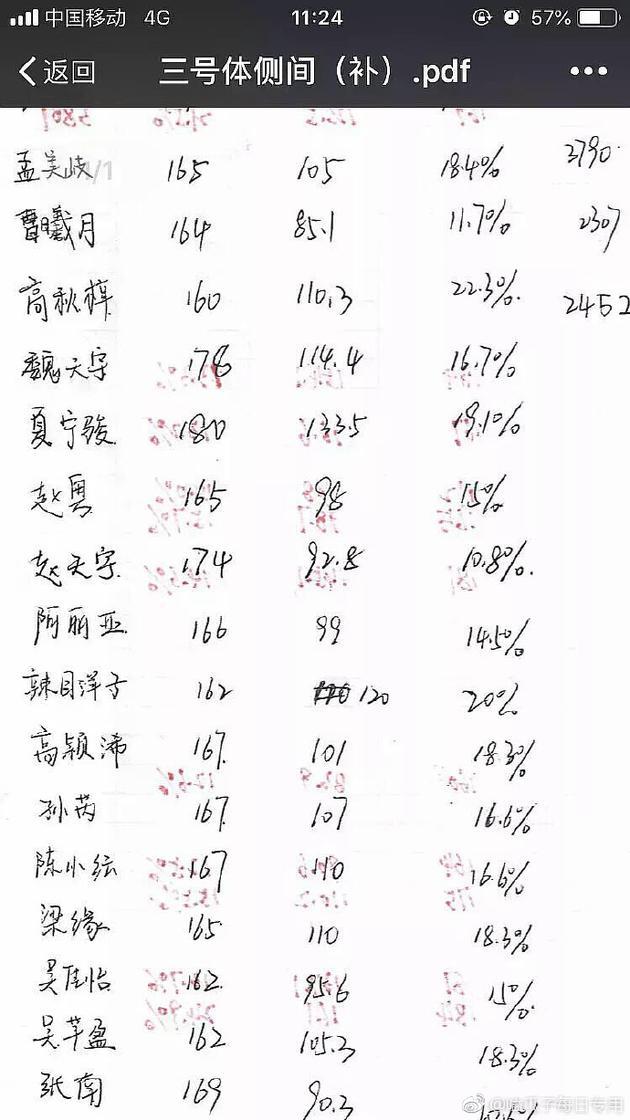 中国移动 4G 11:24 57%
返回 三号体侧间（补）.pdf
孟美岐 165 105 18.4% 3790
1/1
曹曦月 164 85.1 11.7% 2307
高秋梓 160 110.3 22.3% 2452
魏天宇 178 114.4 16.7%
夏宁骏 180 133.5 19.1%
赵粤 165 98 15%
赵天宇 174 92.8 10.8%
阿丽亚 166 99 14.5%
辣目洋子 162 120 20%
高颖浠 167 101 18.3%
孙芮 167 107 16.6%
陈小纭 167 110 16.6%
梁缘 165 110 18.3%
吴佳怡 162 95.6 15%
吴芊盈 162 105.3 18.3%
张南 169 90.3
每日专用